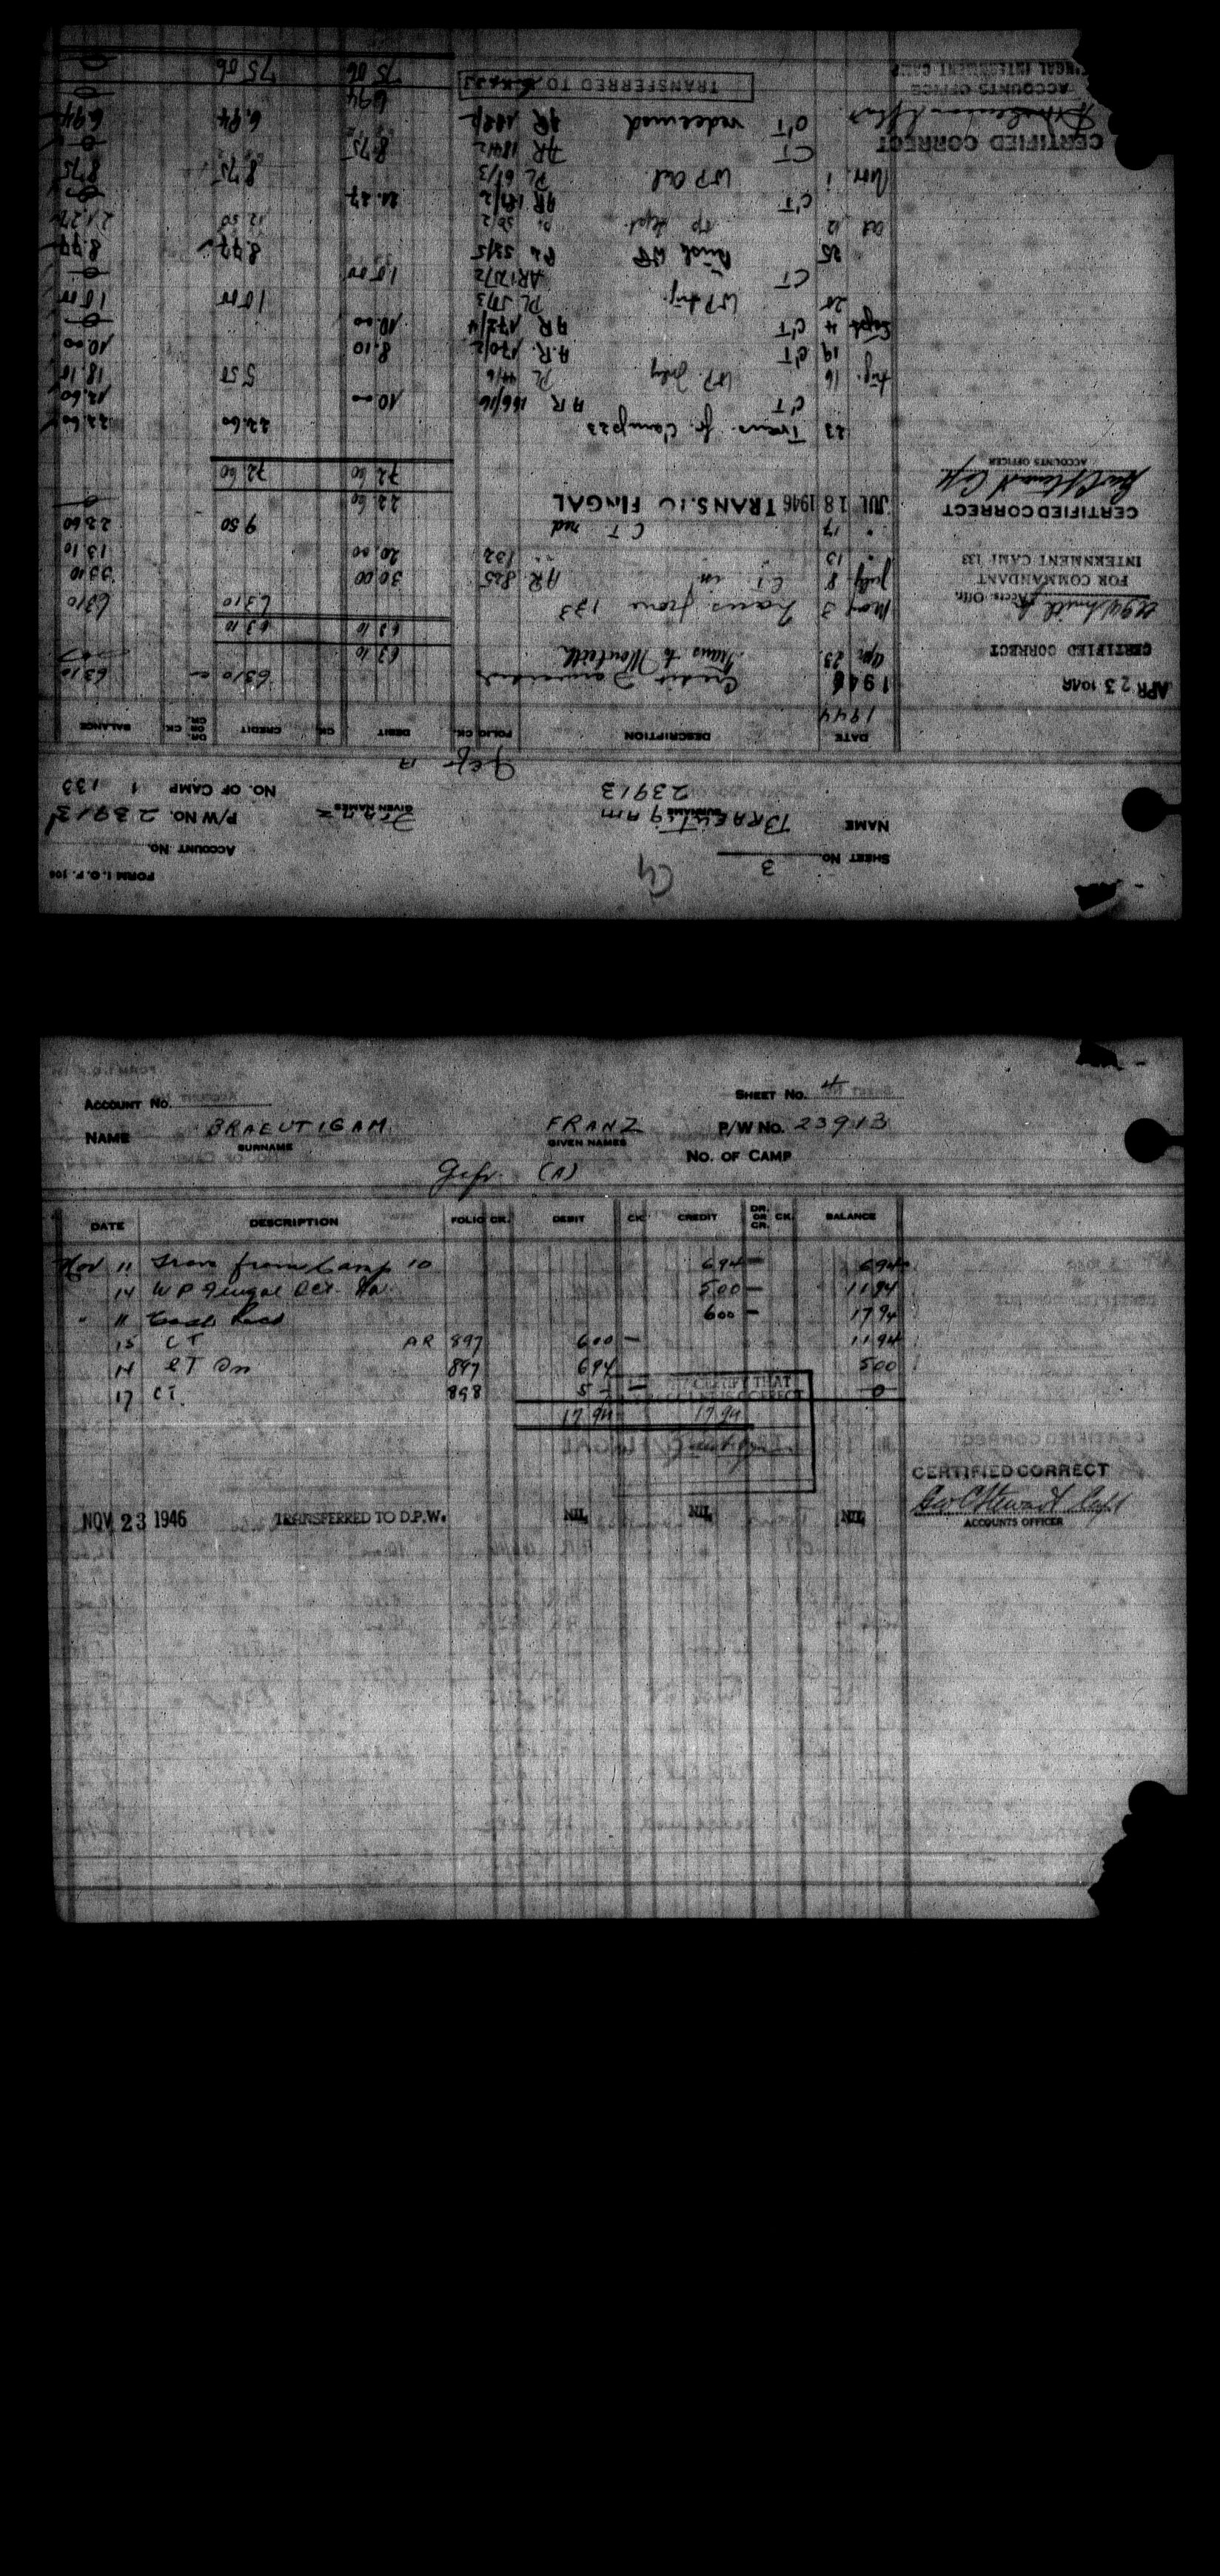 FORM I.O.P. 106
SHEET No. 3
ACCOUNT No.
NAME BRAEUTIGAM Franz P/W No. 23913
SURNAME GIVEN NAMES
23913 No. OF CAMP 1 133
Gefr A
DATE DESCRIPTION FOLIO CK. DEBIT CK. CREDIT DR. OR CR. CK. BALANCE
1944
1946 Credit Forward 63 10 63 10
APR 23 1946
Apr 23 Trans to Monteith 63 10
CERTIFIED CORRECT
63 10 63 10
May 3 Trans from 133 63 10 63 10
Accts. Offr.
FOR COMMANDANT
INTERNMENT CAMP 133
July 8 CT in AR 825 30 00 33 10
" 15 " " 132 20 00 13 10
" 17 CT red 9 50 22 60
JUL 18 1946 TRANS. TO FINGAL 22 60 0
CERTIFIED CORRECT
ACCOUNTS OFFICER
72 60 72 60
23 Trans. fr. Camp 23 22.60 22.60
C'T AR 166/16 10 00 12.60
Aug. 16 WP July PL 44/6 5 50 18.10
19 C'T A.R. 170/2 8.10 10 00
Sept 4 C'T AR 172/4 10.00 0
25 WP Aug. PL 51/3 10 00 10 00
CT AR 10 00 0
25 PL 53/5 8.77 8.77
Oct 12 WP Sept. PL 56/2 12 50 21 27
C'T AR 181/2 21.27 0
Nov. 1 WP Oct. PL 61/3 8 75 8 75
CT AR 184/2 8.75 0
C'T redeemed AR 6.94 6.94
6.94 0
CERTIFIED CORRECT
ACCOUNTS OFFICE
FINGAL INTERNMENT CAMP
TRANSFERRED TO
75 06 75 06 0
ACCOUNT No. SHEET No. 4
NAME BRAEUTIGAM FRANZ P/W No. 23913
SURNAME GIVEN NAMES
No. OF CAMP
Gefr. (A)
DATE DESCRIPTION FOLIO CK. DEBIT CK. CREDIT DR. OR CR. CK. BALANCE
Nov 11 Trans from Camp 10 6 94 — 6 94
14 W P Fingal Oct. 5 00 — 11 94
" 11 Cash 6 00 — 17 94
15 CT AR 897 6 00 — 11 94
14 CT 897 6 94 5 00
17 CT. 898 5 — — 0
CERTIFY THAT
IS CORRECT
17 94 17 94
CERTIFIED CORRECT
Geo C Stewart Capt
ACCOUNTS OFFICER
NOV 23 1946 TRANSFERRED TO D.P.W. NIL NIL NIL